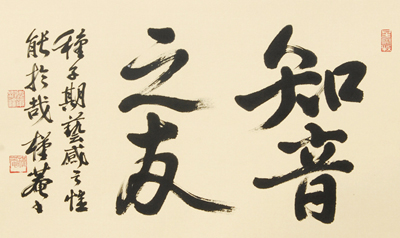 知音
之友
種子期藝感性
能於哉槿菴